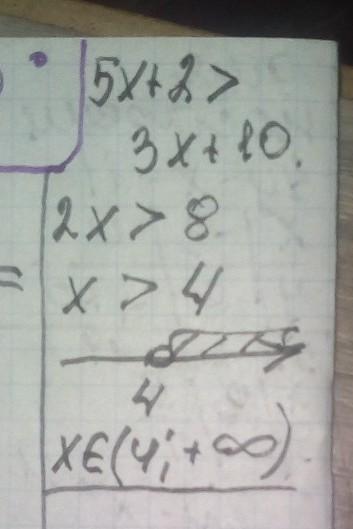 5x+2>
3x+10.
2x > 8
x > 4
4
x∈(4; +∞)